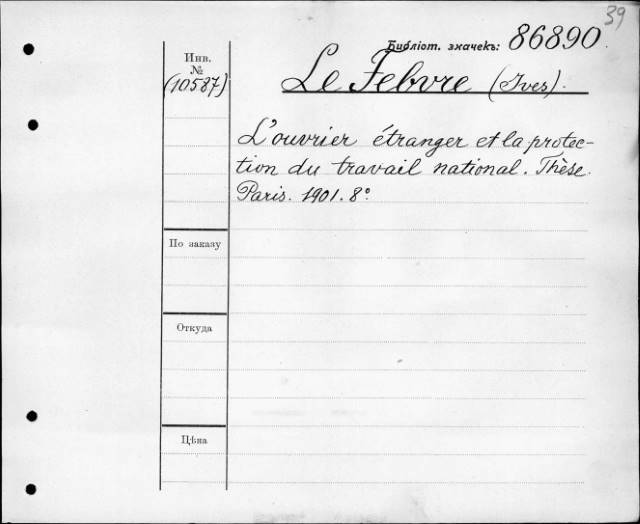 39
Библіот. значекъ: 86890.
Инв.
№
(10587)
Le Febvre (Yves).
L'ouvrier étranger et la protec-
tion du travail national. Thèse.
Paris. 1901. 8°.
По заказу
Откуда
Цѣна